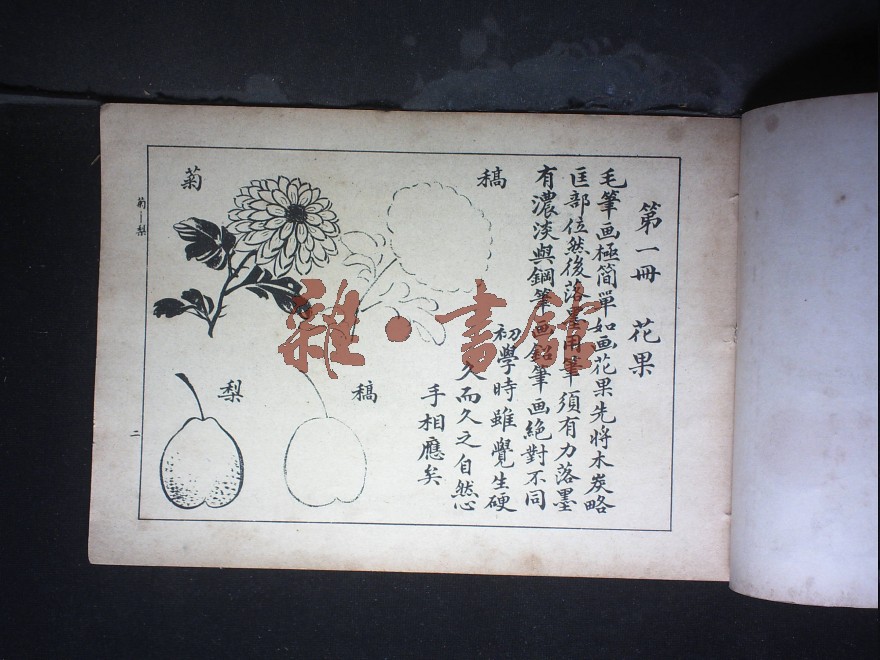 第一冊 花果
毛筆画極簡單如画花果先將木炭略
匡部位然後落墨用筆須有力落墨
有濃淡與鋼筆画鉛筆画絕對不同
初學時雖覺生硬
久而久之自然心
手相應矣
稿
菊
稿
梨
菊—梨
二
雜·書館